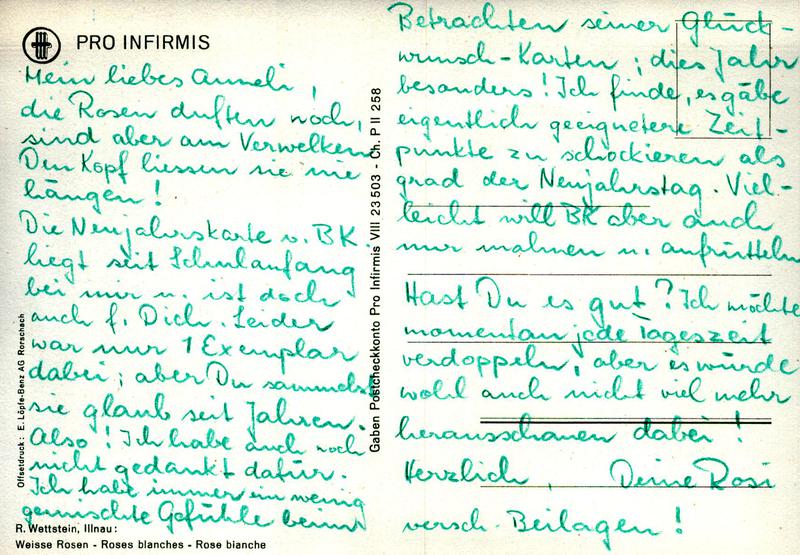 PRO INFIRMIS
Mein liebes Anneli,
die Rosen duften noch,
sind aber am Verwelken
Den Kopf liessen sie nie
hängen!
Die Neujahrskarte v. BK
liegt seit Schulanfang
bei mir u. ist doch
auch f. Dich. Leider
war nur 1 Exemplar
dabei; aber Du sammelst
sie glaub seit Jahren.
Also! Ich habe auch noch
nicht gedankt dafür.
Ich habe immer ein wenig
gemischte Gefühle beim
R. Wettstein, Illnau:
Weisse Rosen - Roses blanches - Rose bianche
Offsetdruck: E. Löpfe-Benz AG Rorschach
Gaben Postcheckkonto Pro Infirmis VIII 23 503 - Ch. P II 258
Betrachten seiner Glück-
wunsch-Karten; dies Jahr
besonders! Ich finde, es gäbe
eigentlich geeignetere Zeit-
punkte zu schockieren als
grad der Neujahrstag. Viel-
leicht will BK aber auch
nur mahnen u. aufrütteln
Hast Du es gut? Ich möchte
momentan jede Tageszeit
verdoppeln, aber es würde
wohl auch nicht viel mehr
herausschauen dabei!
Herzlich, Deine Rosi
versch. Beilagen!